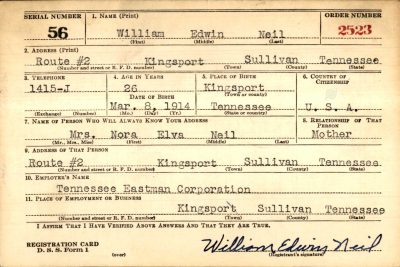 SERIAL NUMBER 1. NAME (Print) ORDER NUMBER
56 William Edwin Neil 2523
(First) (Middle) (Last)
2. ADDRESS (Print)
Route #2 Kingsport Sullivan Tennessee
(Number and street or R. F. D. number) (Town) (County) (State)
3. TELEPHONE 4. AGE IN YEARS 5. PLACE OF BIRTH 6. COUNTRY OF CITIZENSHIP
1415-J 26 Kingsport
DATE OF BIRTH (Town or county)
Mar. 8, 1914 Tennessee U. S. A.
(Exchange) (Number) (Mo.) (Day) (Yr.) (State or country)
7. NAME OF PERSON WHO WILL ALWAYS KNOW YOUR ADDRESS 8. RELATIONSHIP OF THAT PERSON
Mrs. Nora Elva Neil Mother
(Mr., Mrs., Miss) (First) (Middle) (Last)
9. ADDRESS OF THAT PERSON
Route #2 Kingsport Sullivan Tennessee
(Number and street or R. F. D. number) (Town) (County) (State)
10. EMPLOYER'S NAME
Tennessee Eastman Corporation
11. PLACE OF EMPLOYMENT OR BUSINESS
Kingsport Sullivan Tennessee
(Number and street or R. F. D. number) (Town) (County) (State)
I AFFIRM THAT I HAVE VERIFIED ABOVE ANSWERS AND THAT THEY ARE TRUE.
REGISTRATION CARD
D. S. S. Form 1 (over) William Edwin Neil
(Registrant's signature)